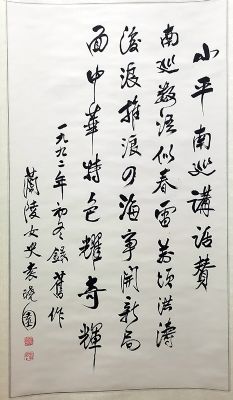 小平南巡講話贊
南巡數語似春雷萬頃洪濤
後浪推浪的海事開新局
面中華特色耀奇輝
一九九二年初冬錄舊作
蘭陵女史袁曉園